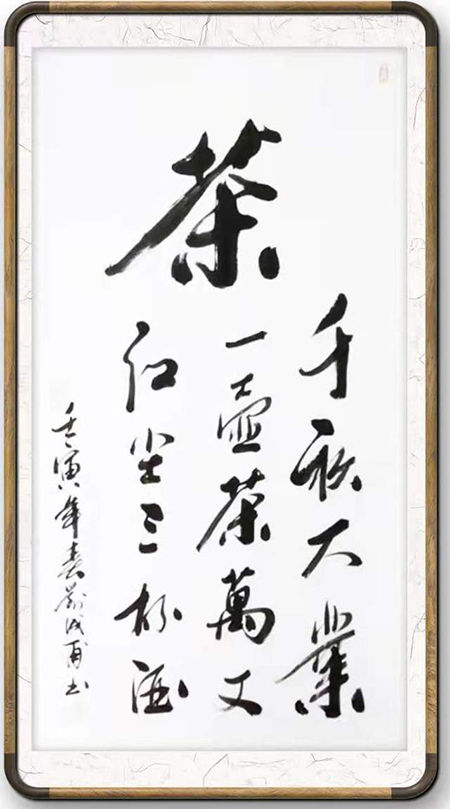 茶
千秋大業
一壺茶萬丈
红尘三杯酒
壬寅年春甫书